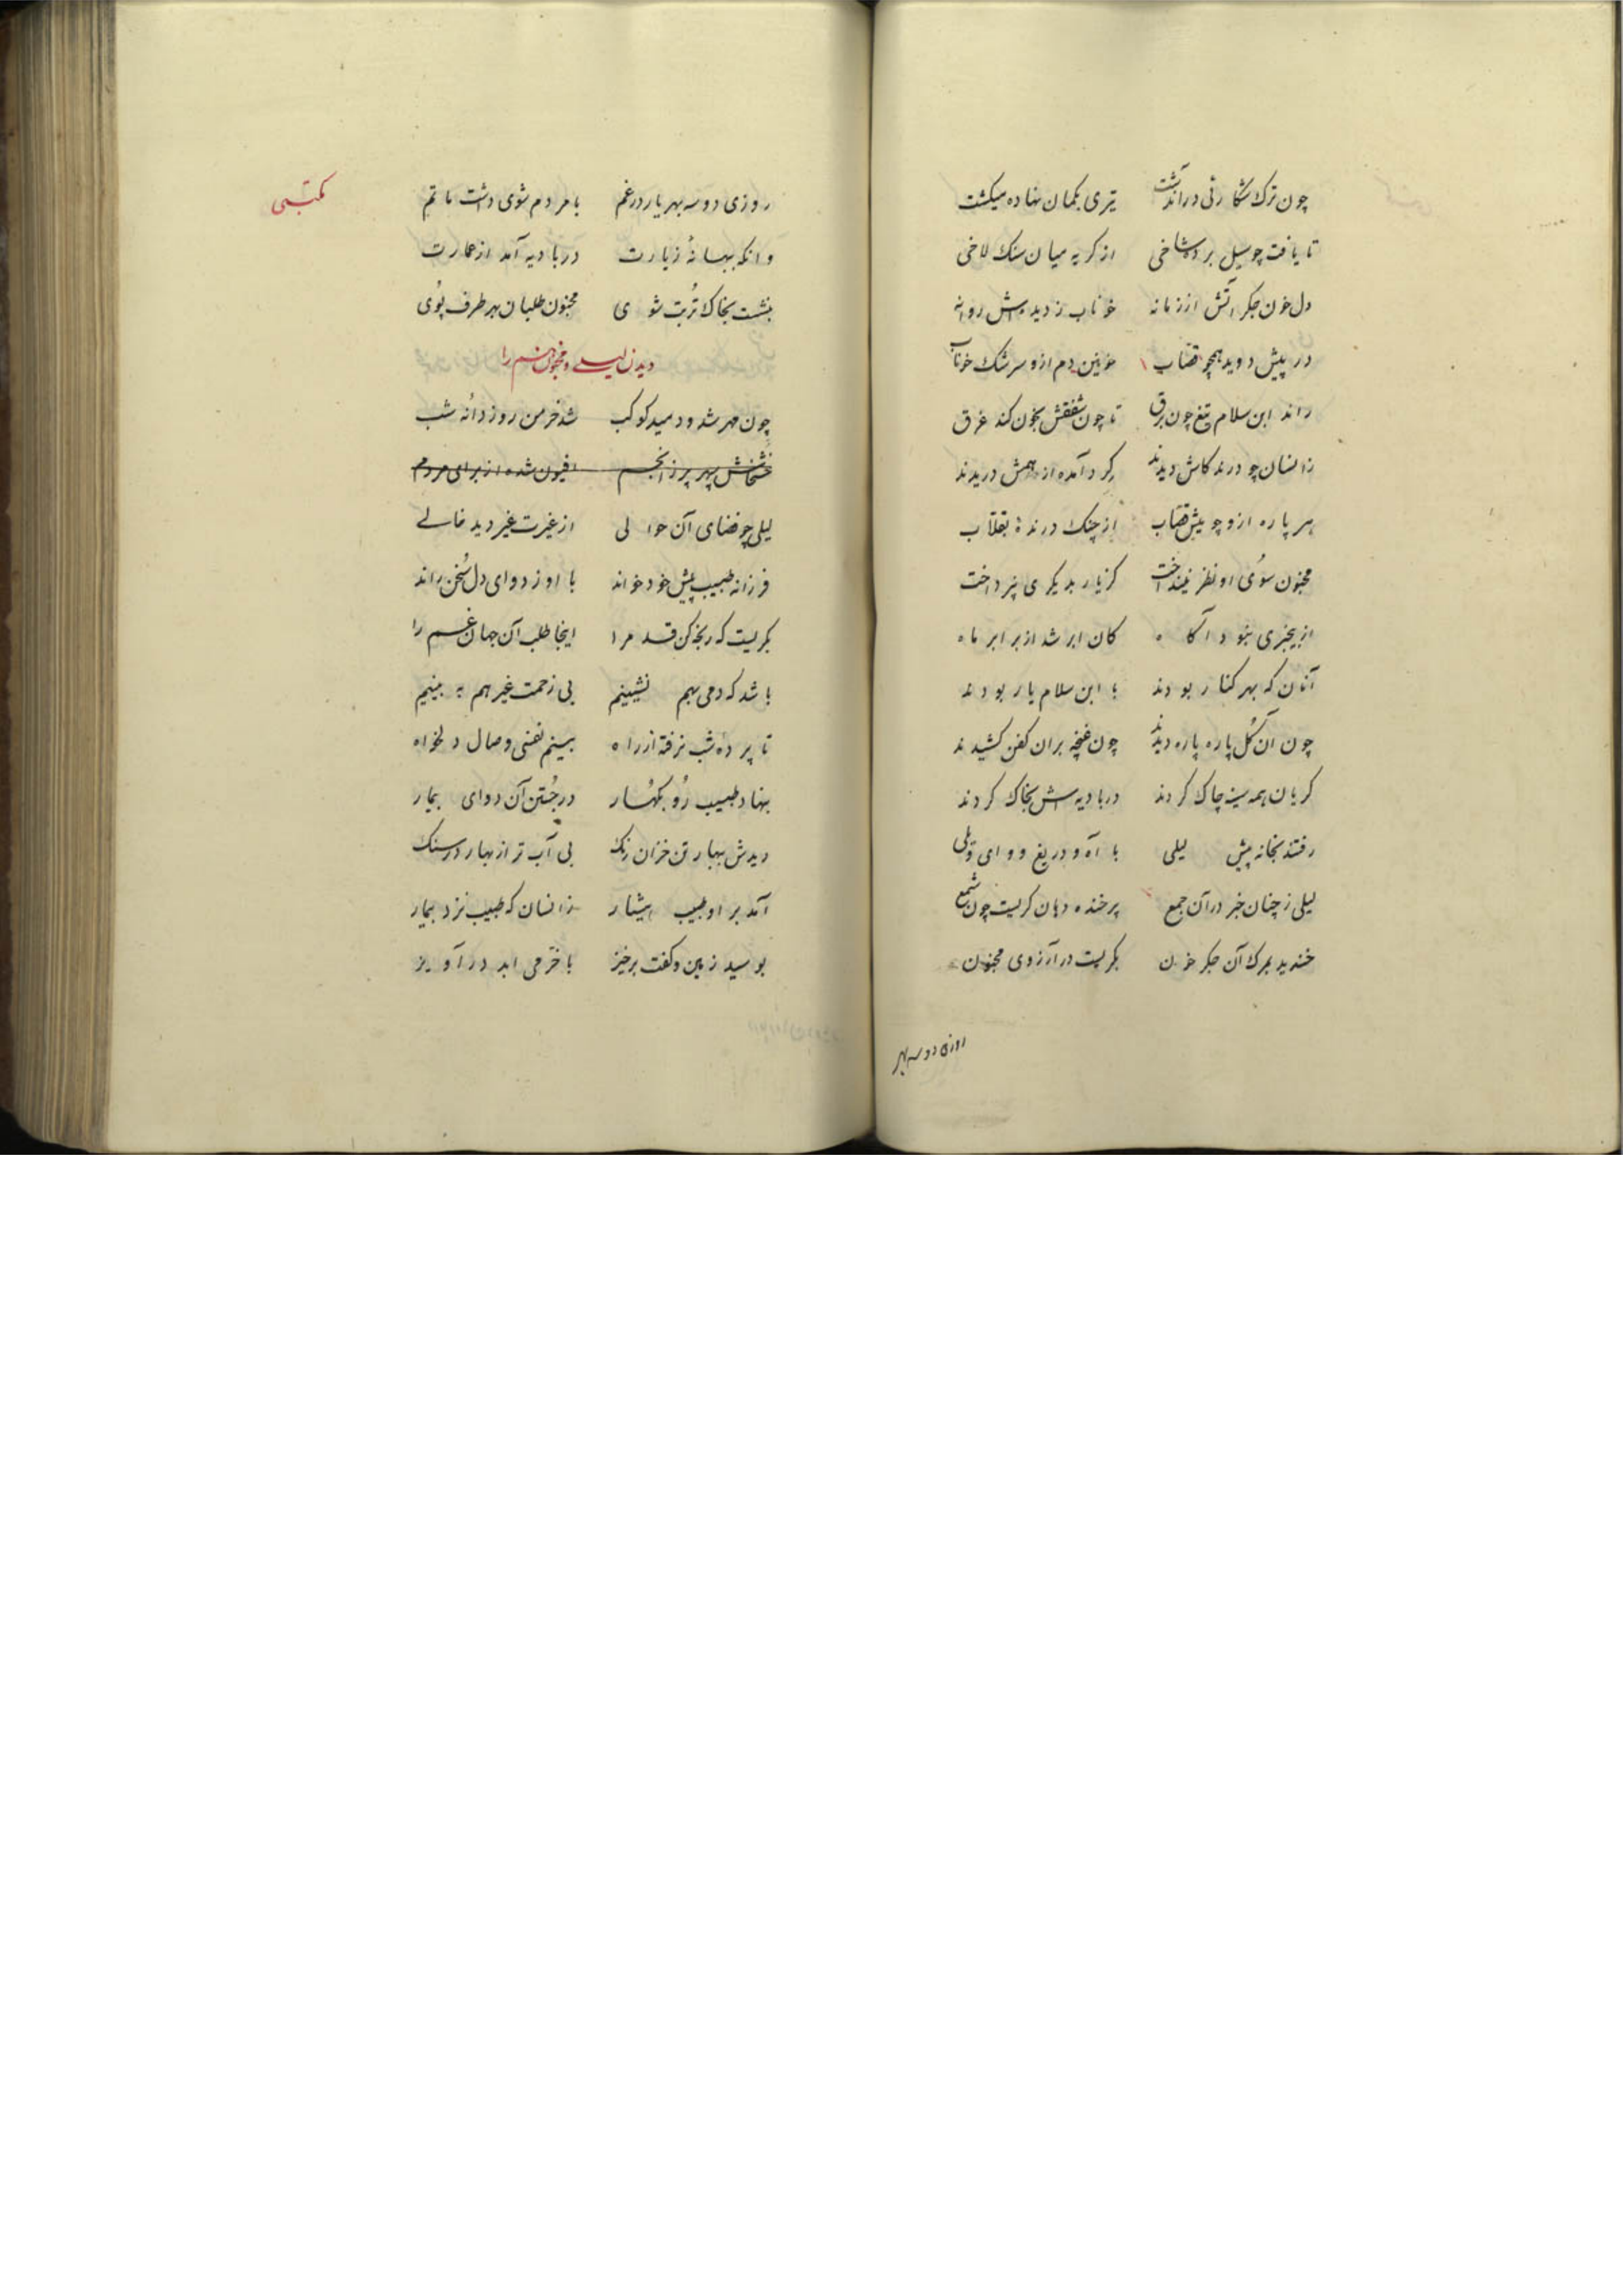 چون ترک شکا رئی دران دشت تیری بکمان نهاده میکشت
تا یافت چو سیل برده شاخی از کریه میان سنک لاخی
دل خون جکر آتش از زمانه خوناب ز دیده اش روانه
در پیش دوید همچو قصاب خونین دم ازو سرشک خوناب
راند ابن سلام تیغ چون برق تا چون شفقش بخون کند غرق
زانسان چو درند کاش دیدند کرد آمده از همش دریدند
هر پاره ازو چو پیش قصاب از چنک درندهٔ بقلاب
مجنون سوُی او نظر نینداخت کز یار بدیکری نپرداخت
از بیخبری نبود آکاه کان ابر شد از برابر ماه
آنان که بهر کنار بودند با ابن سلام یار بودند
چون آن کُل پاره پاره دیدند چون غنچه بران کفن کشیدند
کریان همه سینه چاک کردند در بادیه اش بخاک کردند
رفتند بخانه پیش لیلی با آه و دریغ و وای ویلی
لیلی ز چنان خبر در آن جمع پر خنده دهان کریست چون شمع
خندید بمرک آن جکر خون بکریست در آرزوی مجنون
روزی دو سه بهر
مکتبی
روزی دو سه بهر یار در غم با مردم شوی داشت ماتم
وانکه ببهانهٔ زیارت در بادیه آمد از عمارت
بنشست بخاک تُربت شوی مجنون طلبان بهر طرف پوُی
دیدن لیلی و مجنون هم را
چون مهر شد و دمید کوکب شد خرمن روز دانهٔ شب
خشخاش سپهر پر ز انجم افیون شده از برای مردم
لیلی چو فضای آن حوالی از غیرت غیر دید خالے
فرزانه طبیب پیش خود خواند با او ز دوای دل سُخن راند
بکریست که رنجه کن قدم را اینجا طلب آن جهان غم را
باشد که دمی بهم نشینیم بی زحمت غیر هم به بینیم
تا پردهٔ شب نرفته از راه بینم نفسی وصال دلخواه
بنهاد طبیب رُو بکهُسار در جُستن آن دوای بیمار
دیدش ببهار تن خزان رنک بی آب تر از بهار در سنک
آمد بر او طبیب هشیار زانسان که طبیب نزد بیمار
بوسید زمین و کفت برخیز با خرّمی ابد در آویز